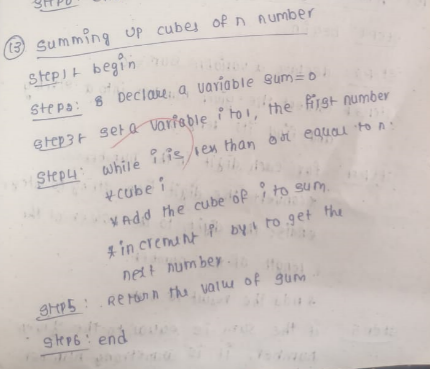 (13) Summing up cubes of n number
Step1: begin
Step2: Declare a variable sum=0
Step3: set a variable i to 1, the first number
Step4: while i is less than or equal to n:
*cube i
*Add the cube of i to sum.
*increment i by 1 to get the
next number
Step5: Return the value of sum
Step6: end